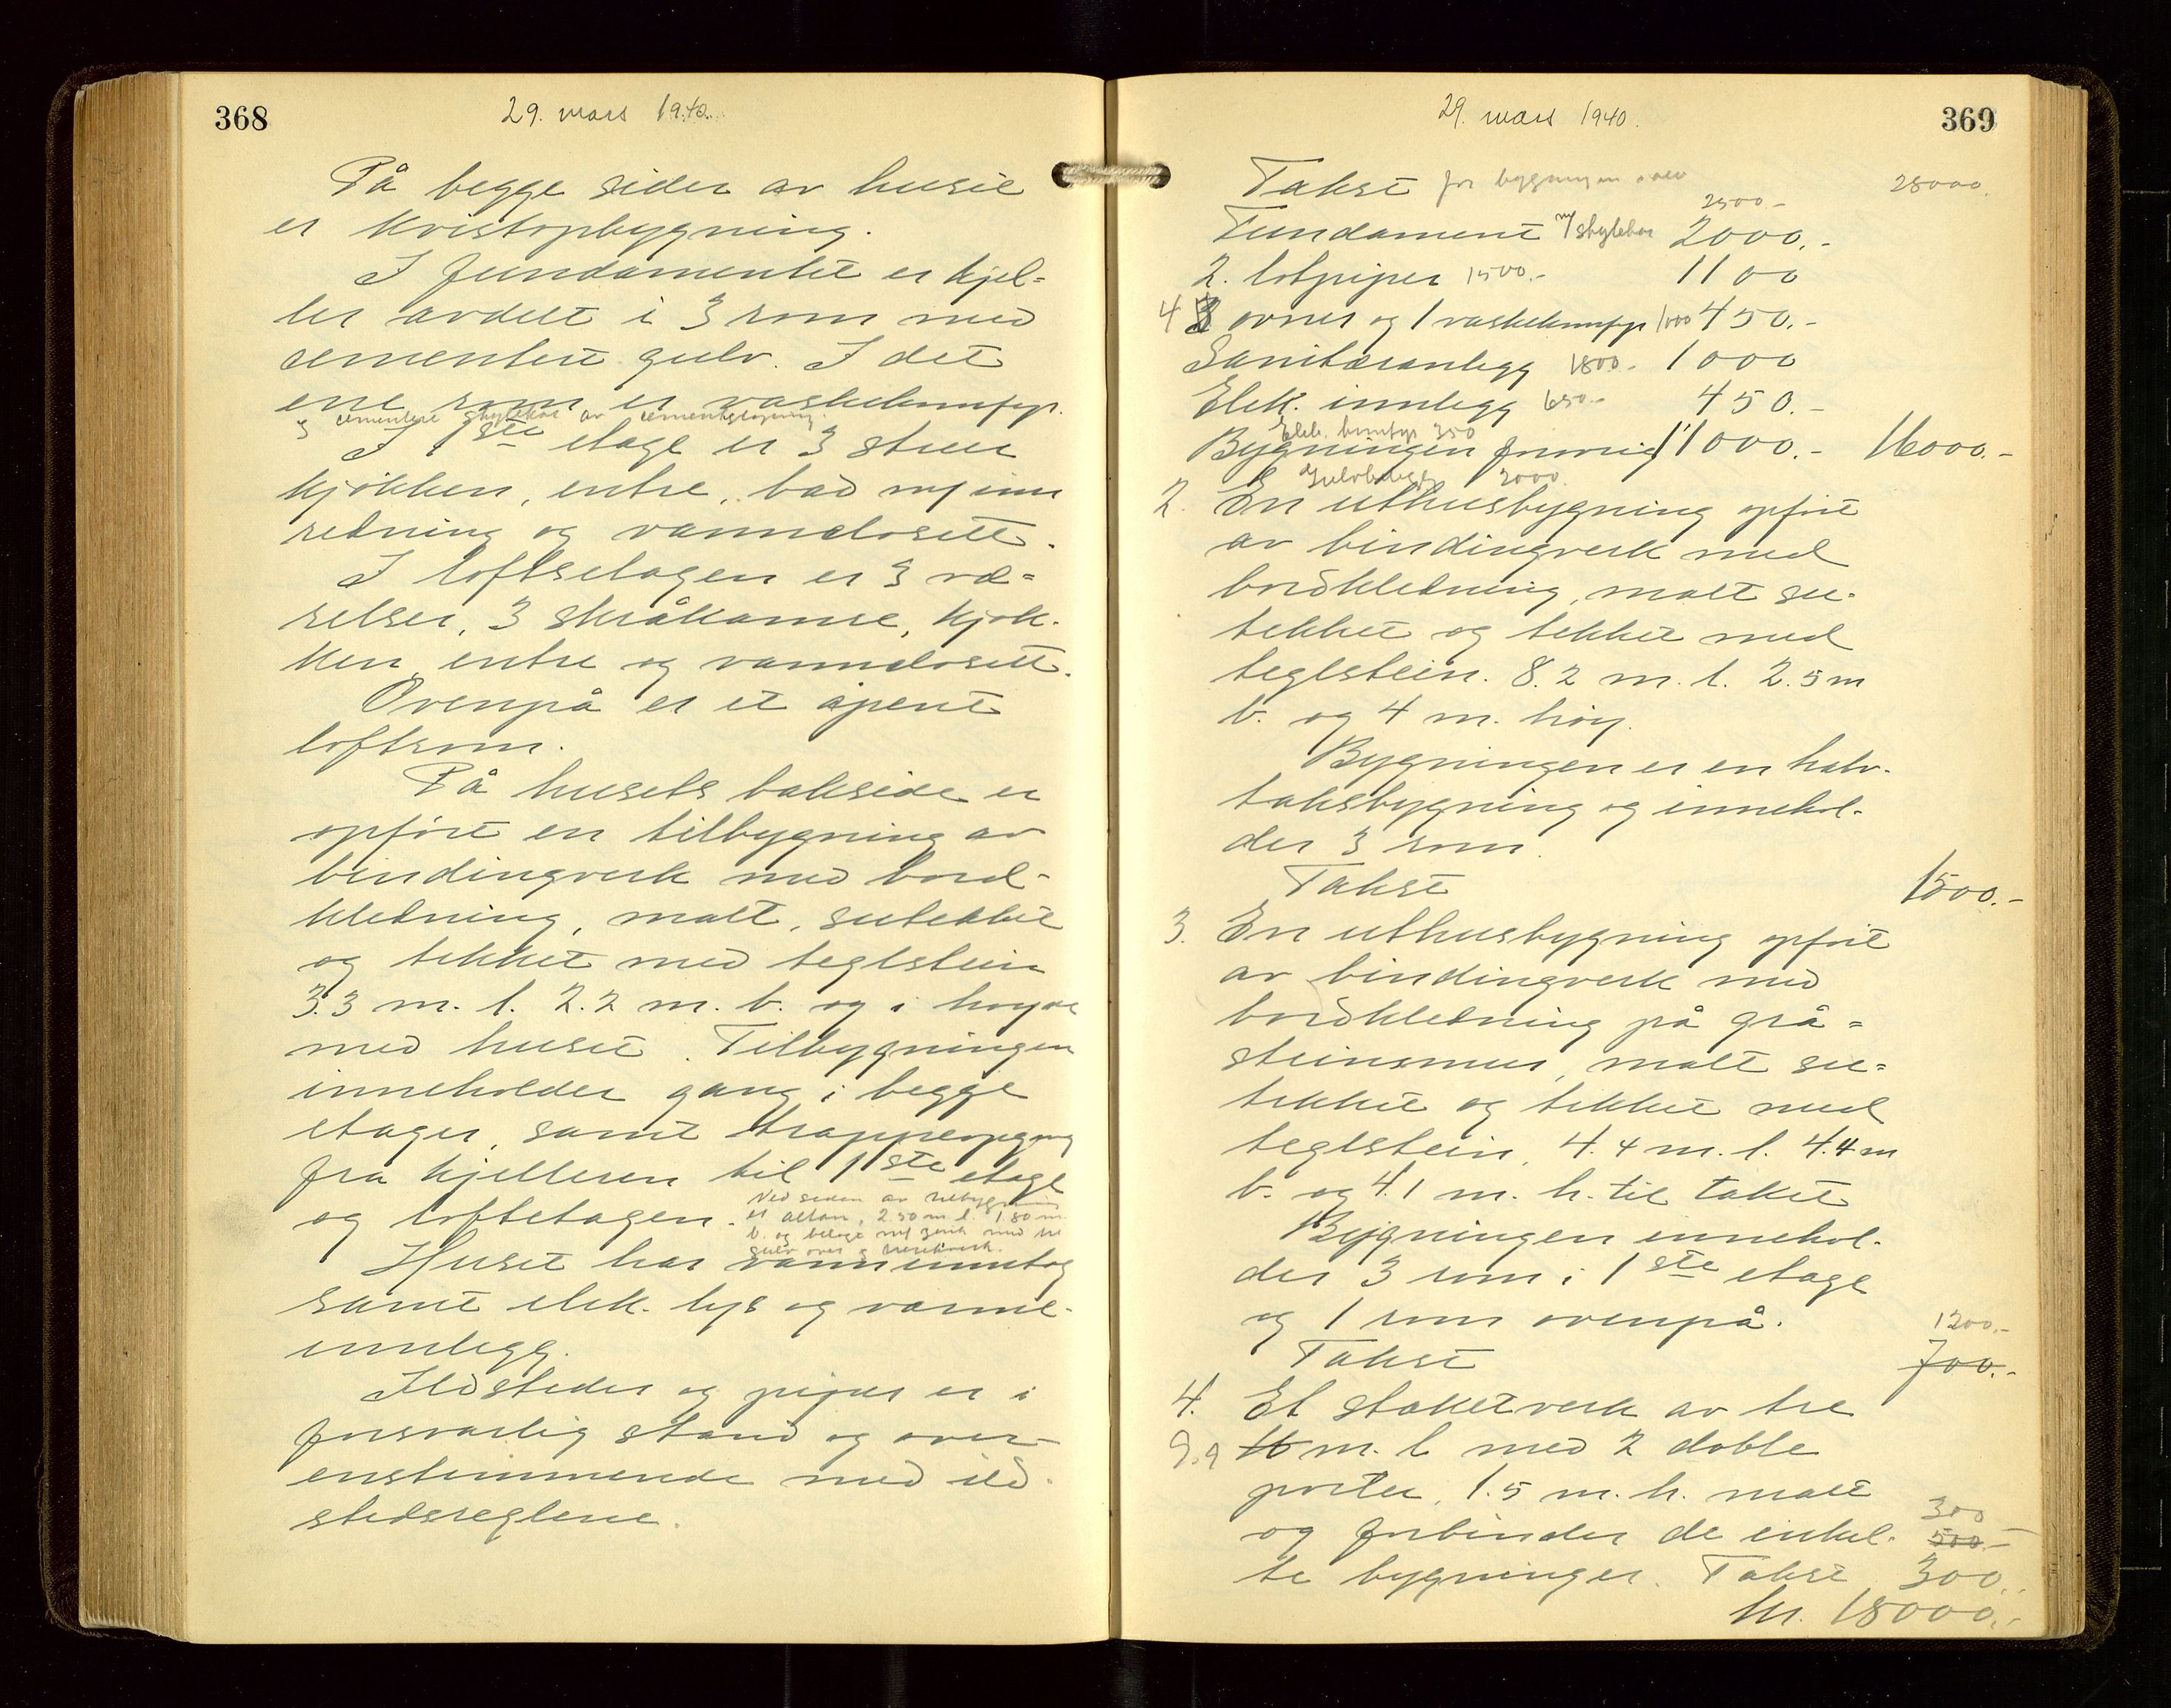 368
29. mars 1940.
På begge sider av huset
er kvistopbygning.
I fundamentet er kjel=
ler avdelt i 3 rom med
cementert gulv. I det
ene rom er vaskekomfyr.
3 cementere skyllekar av cementstøpning.
I 1ste etage er 3 stuer
kjøkken, entre, bad m/ inn
redning og vannclosett.
I loftsetagen er 3 væ=
relser, 3 skråkamre, kjøk-
ken, entre og vannclosett.
Ovenpå er et åpent
loftsrom.
På husets bakside er
opført en tilbygning av
bindingverk med bord-
kledning, malt, sutekket
og tekket med teglstein
3.3 m. l. 2.2 m. b. og i høyde
med huset. Tilbygningen
inneholder gang i begge
etager, samt trappeopgang
fra kjelleren til 1ste etage
og loftetagen.
Ved siden av tilbygning
er altan, 2.50 m. l. 1.80 m.
b. og belagt m/ zink med tre
gulv over og
Huset har vanninntag
samt elek. lys og varme-
innlegg.
Ildsteder og piper er i
forsvarlig stand og over-
enstemmende med ild-
stedsreglene.
369
29. mars 1940.
Takst for bygningen 28000.
2500.-
Fundament m/ skyllekar 2000.-
2. løtpiper 1500.- 1100
4 8 ovner og 1 vaskekomfyr 1000 450.-
Sanitæranlegg 1800.- 1000
Elek. innlegg 650.- 450.-
Elek. komfyr 350
Bygningen forøvrig 11000.- 16000.-
Gulvbelegg 2000.
2. En uthusbygning opført
av bindingverk med
bordkledning, malt su-
tekket og tekket med
teglstein. 8.2 m. l. 2.5 m
b. og 4 m. høy.
Bygningen er en halv-
taksbygning og innehol-
der 3 rom.
Takst 1500.-
3. En uthusbygning opført
av bindingverk med
bordkledning på grå=
steinsmur, malt su=
tekket og tekket med
teglstein, 4.4 m. l. 4.4 m
b. og 4.1 m. h. til taket
Bygningen innehol-
der 3 rom i 1ste etage
og 1 rom ovenpå.
1200.-
Takst 700.-
4. Et staketverk av tre
9.9 16 m. l. med 2 doble
porter, 1.5 m. h. malt
300
og forbinder de enkel- 500.-
te bygninger. Takst 300.-
kr. 18000.-